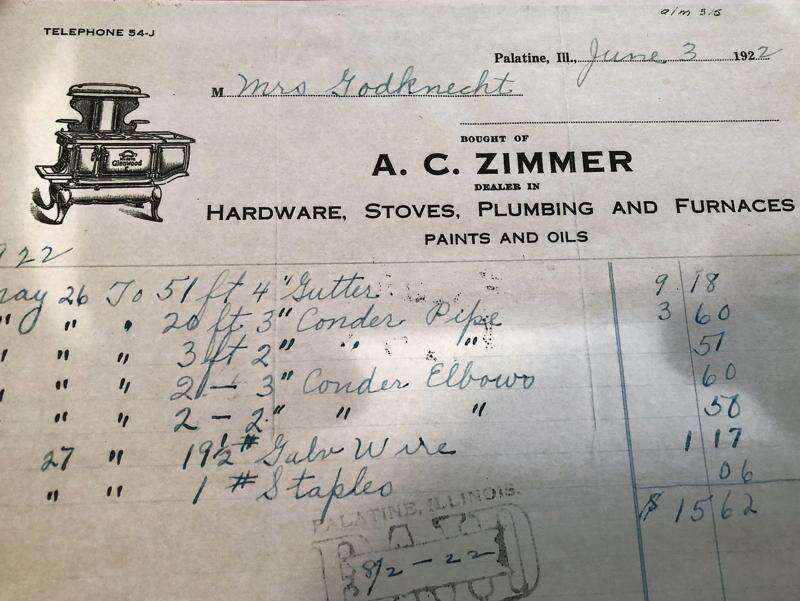 a/m 515
TELEPHONE 54-J
Palatine, Ill., June 3 1922
M Mrs Godknecht
Glenwood
BOUGHT OF
A. C. ZIMMER
DEALER IN
HARDWARE, STOVES, PLUMBING AND FURNACES
PAINTS AND OILS
922
may 26 To 51 ft 4" Gutter 9 18
" " " 20 ft 3" Conder Pipe 3 60
" " " 3 ft 2" " " 51
" " " 2 - 3" Conder Elbows 60
" " " 2 - 2" " " 50
27 " 19½ # Galv Wire 1 17
" " 1 # Staples 06
$ 15 62
PALATINE, ILLINOIS.
PAID
8/2-22